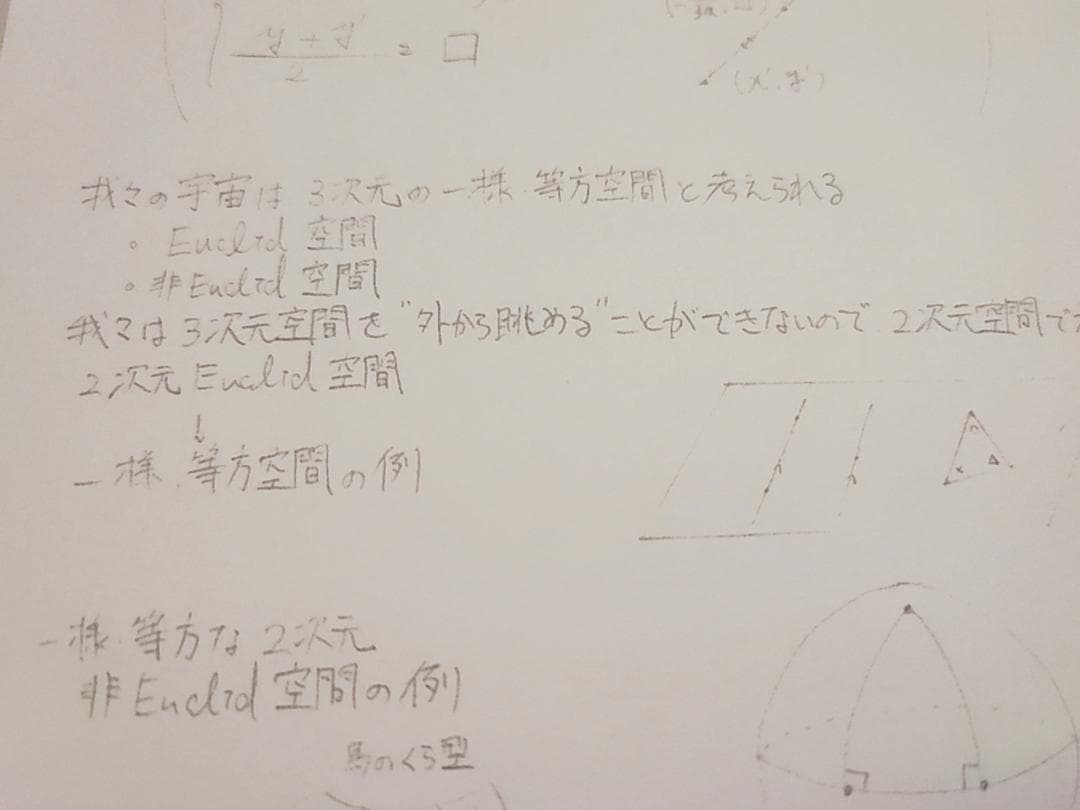 y + y'
2
= □
(x', y')
我々の宇宙は 3次元の一様.等方空間と考えられる
。Euclid 空間
。非Euclid 空間
我々は3次元空間を"外から眺める"ことができないので 2次元空間で
2次元 Euclid 空間
↓
一様.等方空間の例
一様.等方な 2次元
非Euclid 空間の例
馬のくら型